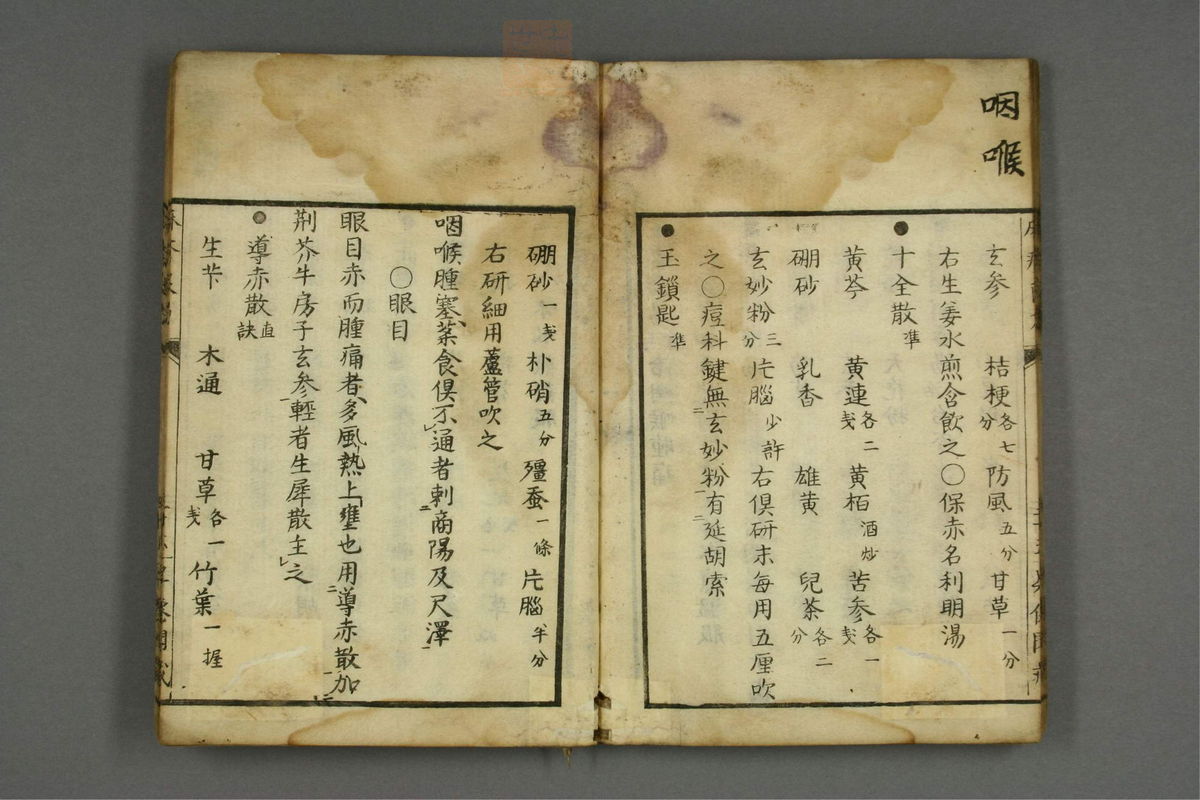 咽喉
玄参 桔梗各七分 防風五分 甘草一分
右生姜水煎含飲之〇保赤名利明湯
●十全散準
黄芩 黄連各二戔 黄栢酒炒 苦参各一戔
硼砂 乳香 雄黄 兒茶各二分
玄妙粉三分 片腦少許 右倶研末每用五厘吹
之〇痘科鍵無玄妙粉有延胡索
●玉鎖匙準
硼砂一戔 朴硝五分 殭蚕一條 片腦半分
右研細用蘆管吹之
咽喉腫塞藥食倶不通者刺商陽及尺澤
〇眼目
眼目赤而腫痛者多風熱上壅也用導赤散加
荆芥牛房子玄参輕者生犀散主之
●導赤散直訣
生芐 木通 甘草各一戔 竹葉一握